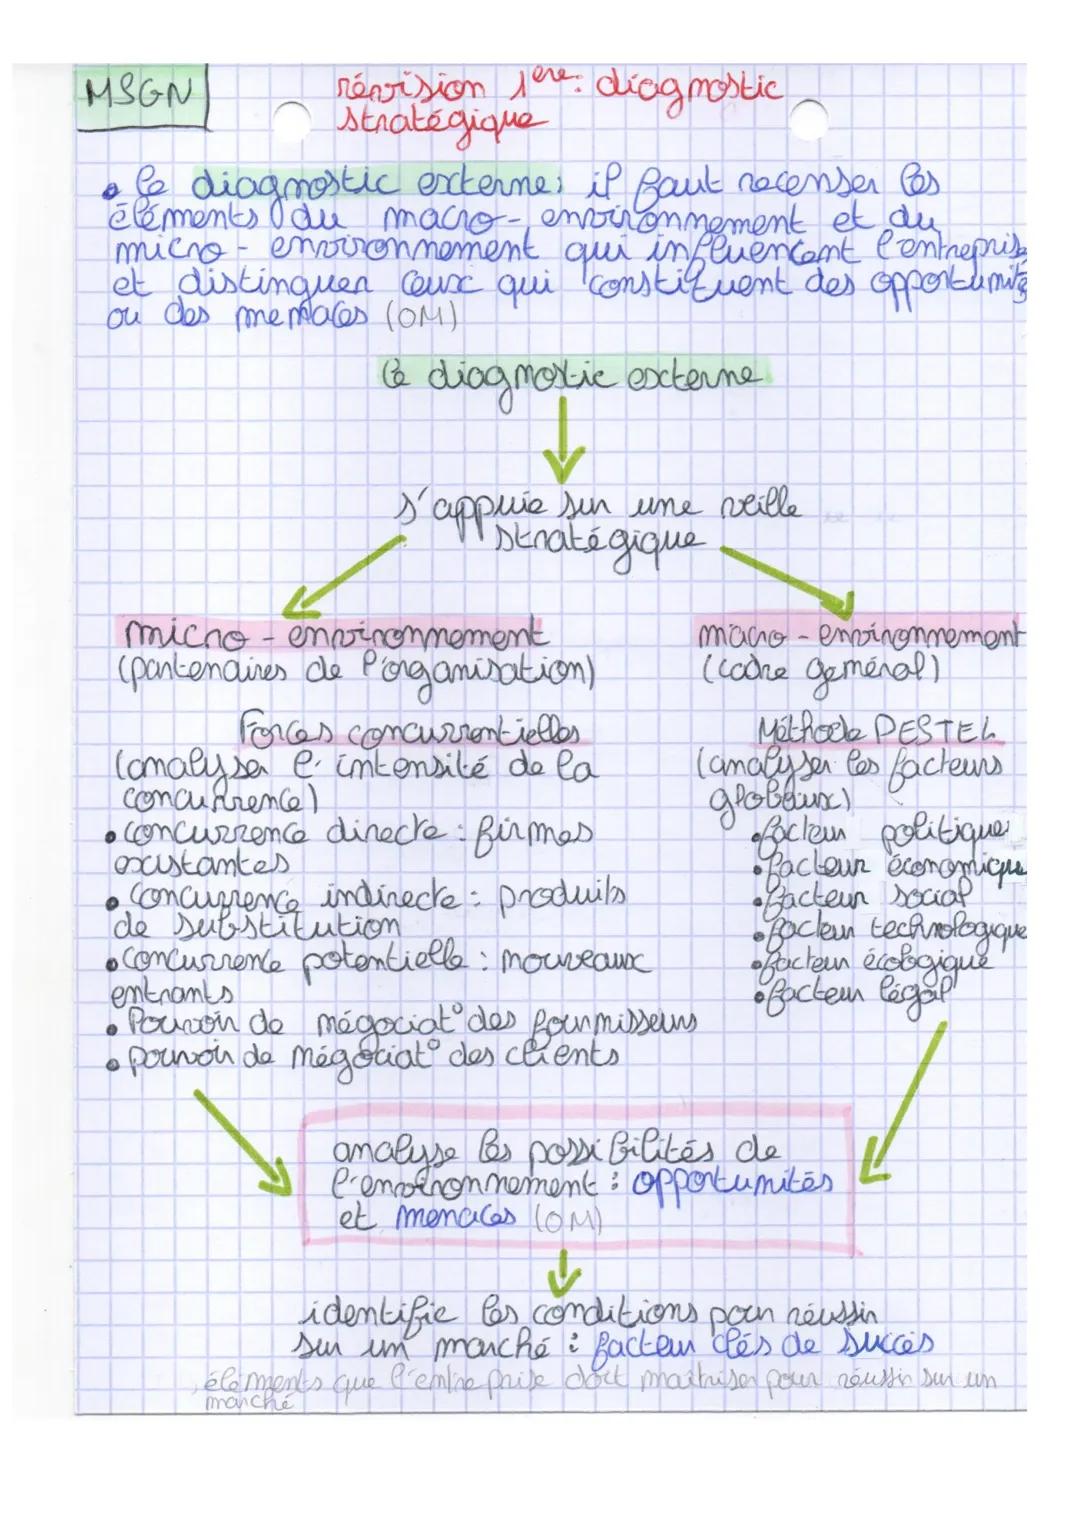 MSGN
révision 1ère: diagnostic
stratégique
• le diagnostic externe: il faut recenser les
éléments du macro-environnement et du
micro-environnement qui influencent l'entreprise
et distinguer ceux qui constituent des opportunités
ou des menaces (OM)
le diagnostic externe
s'appuie sur une veille
stratégique
micro-environnement
(partenaires de l'organisation)
Forces concurrentielles
(analyser l'intensité de la
concurrence)
• concurrence directe : firmes
existantes
• concurrence indirecte : produits
de substitution
• concurrence potentielle : nouveaux
entrants
• Pouvoir de négociat° des fournisseurs
• pouvoir de négociat° des clients
macro-environnement
(cadre général)
Méthode PESTEL
(analyser les facteurs
globaux)
• facteur politique
• facteur économique
• facteur social
• facteur technologique
• facteur écologique
• facteur légal
analyse les possibilités de
l'environnement : opportunités
et menaces (OM)
identifie les conditions pour réussir
sur un marché : facteur clés de succès
éléments que l'entreprise doit maitriser pour réussir sur un
marché